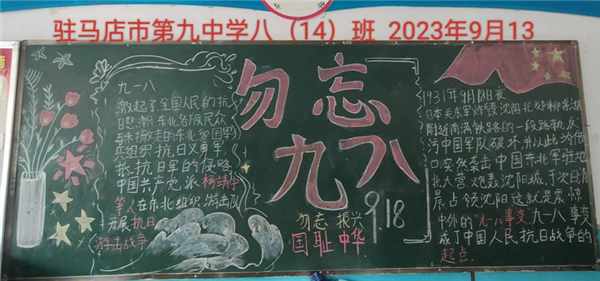 驻马店市第九中学八（14）班 2023年9月13
九一八
激起了全国人民的抗
日怒潮 东北各族民众
与未撤走的东北爱国军
兵组织抗日义勇军
抵抗日军的侵略
中国共产党派杨靖宇
等人在东北组织游击队
开展抗日
游击战争
勿忘
九一八
9.18
勿忘 振兴
国耻 中华
1931年9月18日夜
日本关东军炸毁沈阳北郊柳条湖
附近南满铁路的一段路轨,反
污中国军队破坏,并以此为借
口,突然袭击中国东北军驻地
北大营,炮轰沈阳城,于次日清
晨占领沈阳,这就是震惊
中外的"九一八事变"九一八事变
成了中国人民抗日战争的
起点